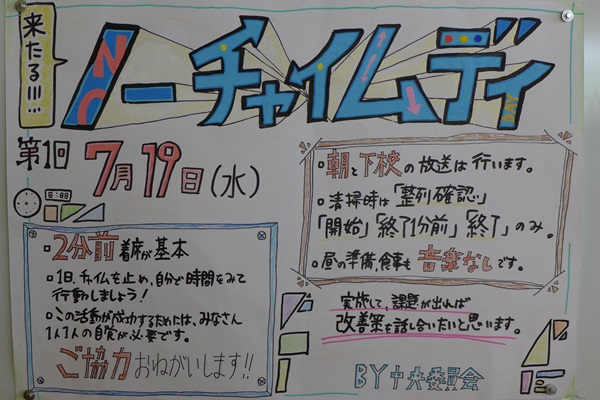 来たる!!!…
NO
ノーチャイムディ
DAY
第1回 7月19日(水)
2分前着席が基本
1日、チャイムを止め、自分で時間をみて
行動しましょう!
この活動が成功するためには、みなさん
1人1人の自覚が必要です。
ご協力おねがいします!!
朝と下校の放送は行います。
清掃時は「整列確認」
「開始」「終了1分前」「終了」のみ。
昼の準備、食事も音楽なしです。
実施して、課題が出れば
改善策を話し合いたいと思います。
BY中央委員会